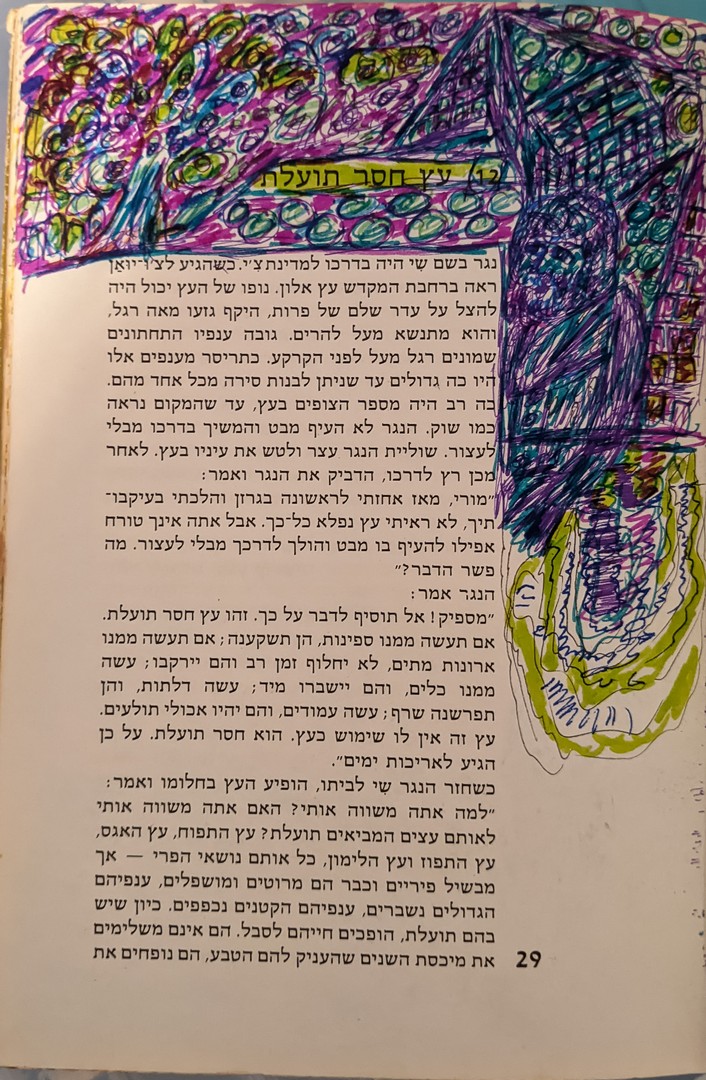 12) עץ חסר תועלת
נגר בשם שִׁי היה בדרכו למדינת צ׳י. כשהגיע לצ׳ו־יוּאַן
ראה ברחבת המקדש עץ אלון. נופו של העץ יכול היה
להצל על עדר שלם של פרות, היקף גזעו מאה רגל,
והוא מתנשא מעל להרים. גובה ענפיו התחתונים
שמונים רגל מעל לפני הקרקע. כתריסר מענפים אלו
היו כה גדולים עד שניתן לבנות סירה מכל אחד מהם.
כה רב היה מספר הצופים בעץ, עד שהמקום נראה
כמו שוק. הנגר לא העיף מבט והמשיך בדרכו מבלי
לעצור. שוליית הנגר עצר ולטש את עיניו בעץ. לאחר
מכן רץ לדרכו, הדביק את הנגר ואמר:
״מורי, מאז אחזתי לראשונה בגרזן והלכתי בעיקבו־
תיך, לא ראיתי עץ נפלא כל־כך. אבל אתה אינך טורח
אפילו להעיף בו מבט והולך לדרכך מבלי לעצור. מה
פשר הדבר?״
הנגר אמר:
״מספיק! אל תוסיף לדבר על כך. זהו עץ חסר תועלת.
אם תעשה ממנו ספינות, הן תשקענה; אם תעשה ממנו
ארונות מתים, לא יחלוף זמן רב והם יירקבו; עשה
ממנו כלים, והם יישברו מיד; עשה דלתות, והן
תפרשנה שרף; עשה עמודים, והם יהיו אכולי תולעים.
עץ זה אין לו שימוש כעץ. הוא חסר תועלת. על כן
הגיע לאריכות ימים״.
כשחזר הנגר שִׁי לביתו, הופיע העץ בחלומו ואמר:
״למה אתה משווה אותי? האם אתה משווה אותי
לאותם עצים המביאים תועלת? עץ התפוח, עץ האגס,
עץ התפוז ועץ הלימון, כל אותם נושאי הפרי — אך
מבשיל פיריים וכבר הם מרוטים ומושפלים, ענפיהם
הגדולים נשברים, ענפיהם הקטנים נכפפים. כיון שיש
בהם תועלת, הופכים חייהם לסבל. הם אינם משלימים
את מיכסת השנים שהעניק להם הטבע, הם נופחים את
29